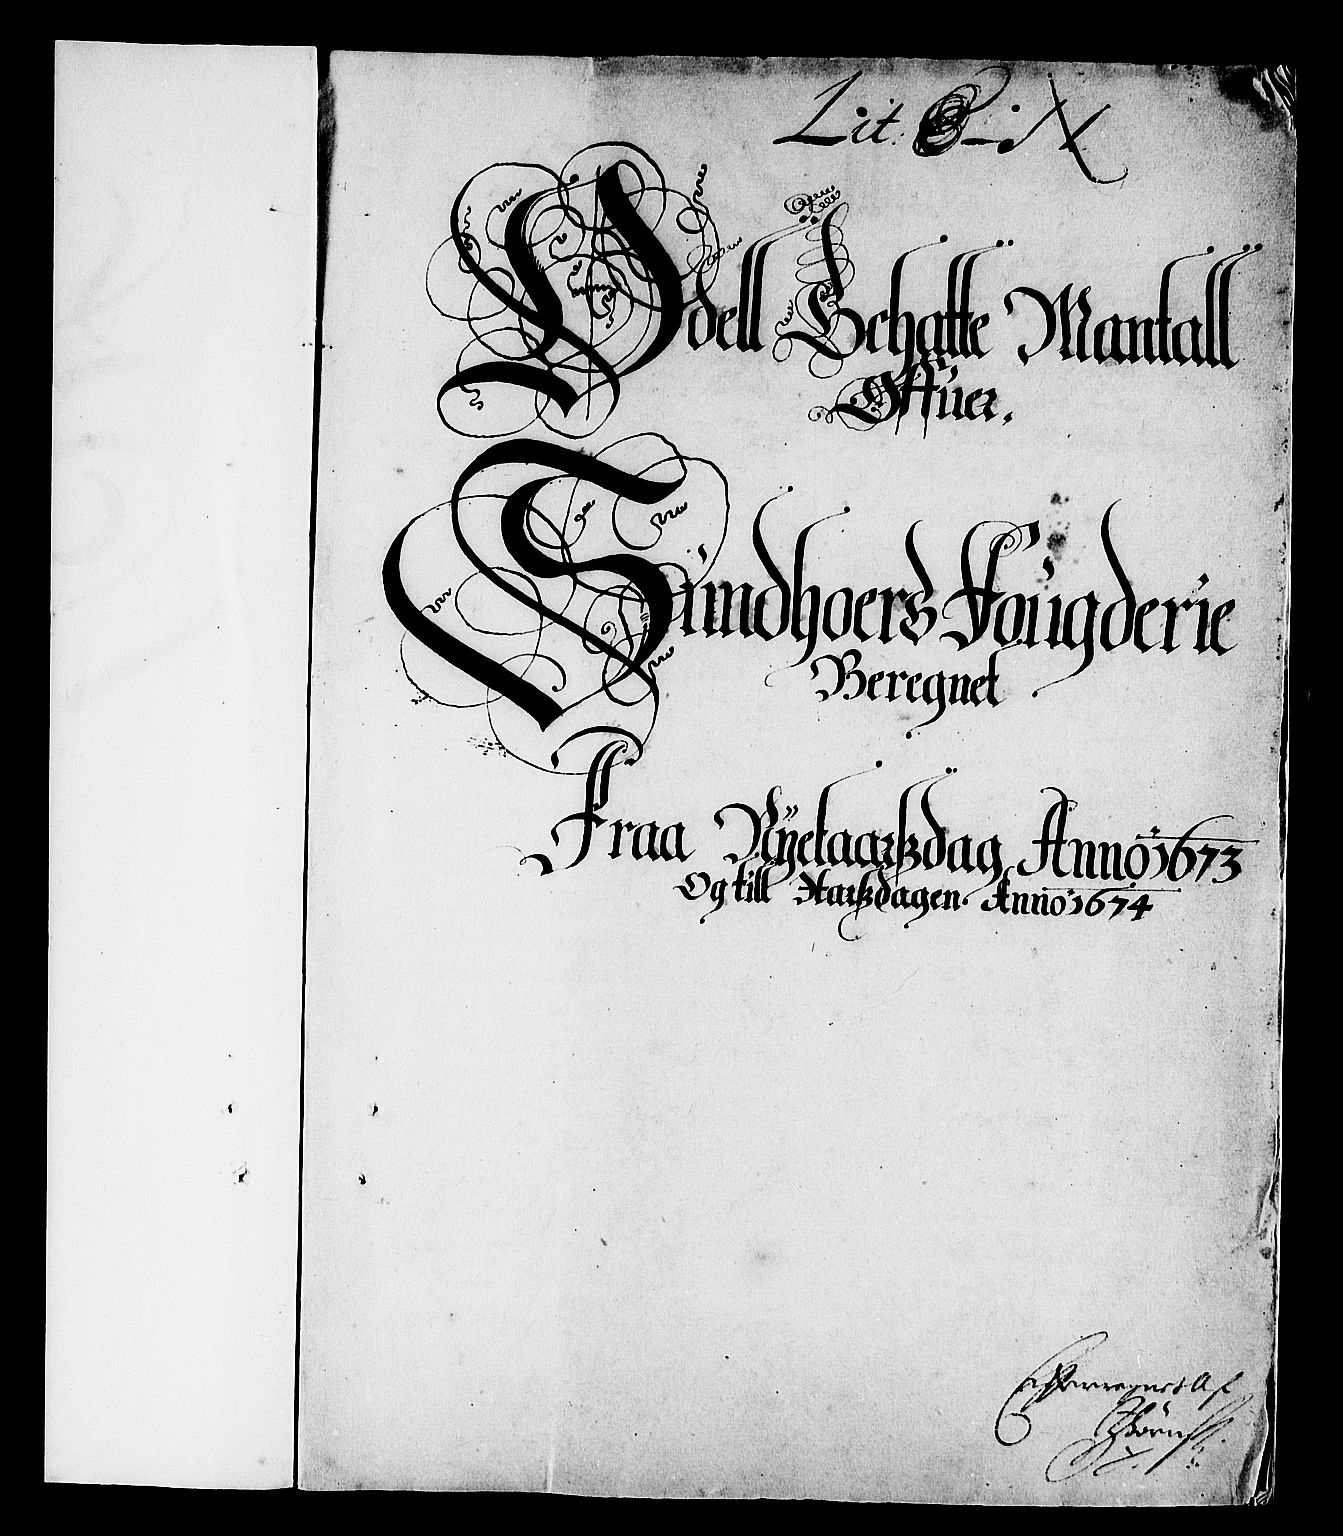 Lit. X
Odell Schatte Mantall
Offuer.
Sundhoers Fougderie
Beregnet
Fraa Nyetaarsdag Anno 1673
Og till Aarsdagen Anno 1674
Efterregnet Af